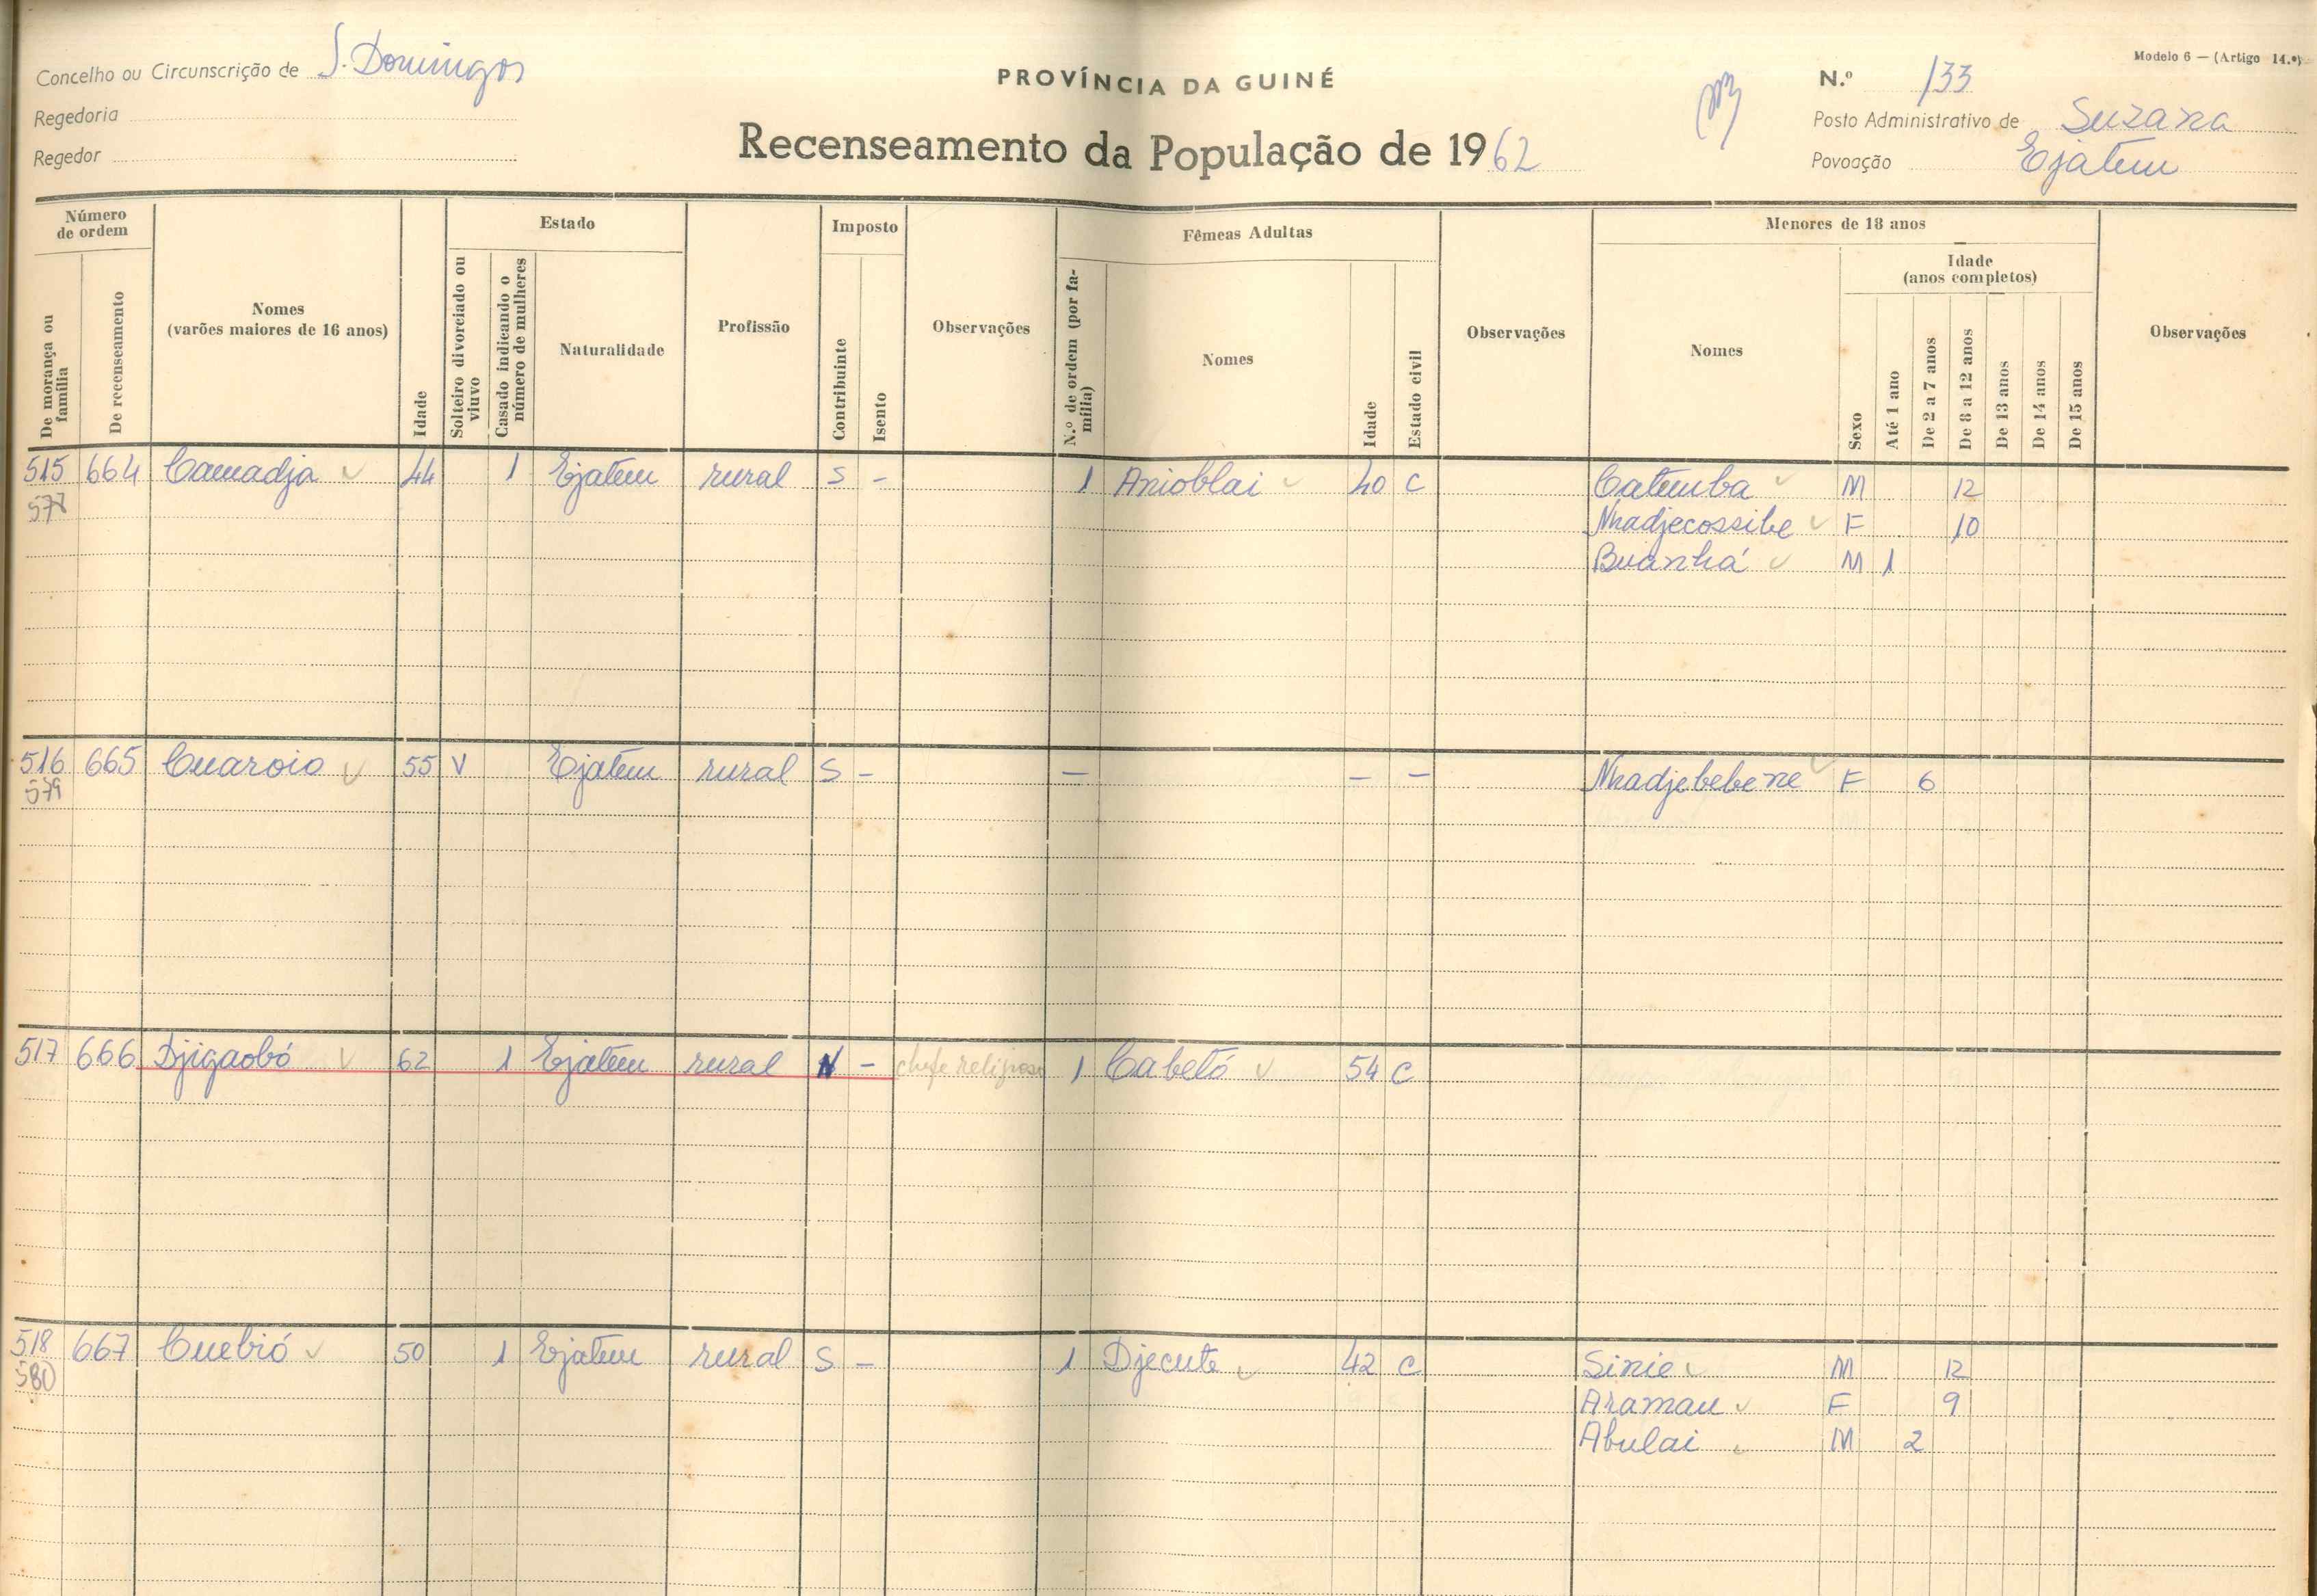 Modelo 6 — (Artigo 14.º)
Concelho ou Circunscrição de S. Domingos
PROVÍNCIA DA GUINÉ
N.º 133
Regedoria
Posto Administrativo de Suzana
Regedor
Recenseamento da População de 1962
Povoação Ejatem
Número de ordem
Estado
Imposto
Fêmeas Adultas
Menores de 18 anos
Idade (anos completos)
De morança ou família
De recenseamento
Nomes (varões maiores de 16 anos)
Idade
Solteiro divorciado ou viuvo
Casado indicando o número de mulheres
Naturalidade
Profissão
Contribuinte
Isento
Observações
N.º de ordem (por família)
Nomes
Idade
Estado civil
Observações
Nomes
Sexo
Até 1 ano
De 2 a 7 anos
De 8 a 12 anos
De 13 anos
De 14 anos
De 15 anos
Observações
515 664 Camadja 44 1 Ejatem rural S - 1 Anioblai 40 C Catemba M 12
577 Nhadjecossibe F 10
Buanhá M 1
516 665 Cuaroio 55 V Ejatem rural S - — — — Nhadjebebene F 6
579
517 666 Djigaobó 62 1 Ejatem rural N - chefe religioso 1 Cabetó 54 C
518 667 Cuebió 50 1 Ejatem rural S - 1 Djecute 42 C Sinie M 12
580 Aramau F 9
Abulai M 2